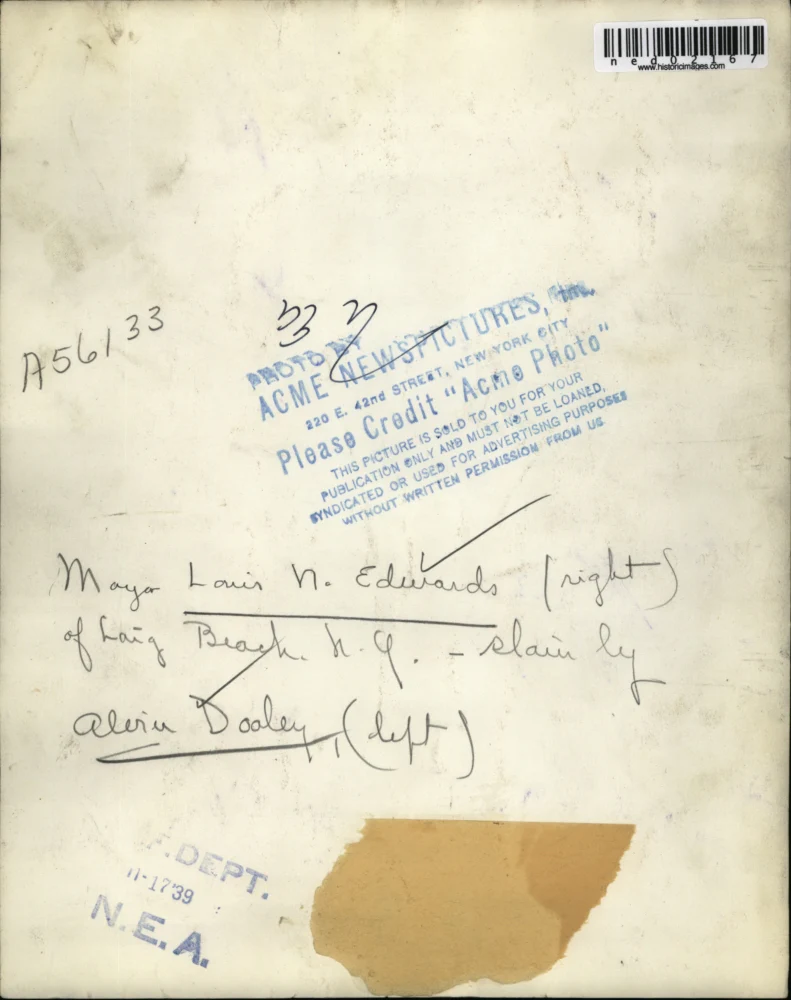 ned02167
www.historicimages.com
A56133
PHOTO BY
ACME NEWSPICTURES, Inc.
220 E. 42nd STREET, NEW YORK CITY
Please Credit "Acme Photo"
THIS PICTURE IS SOLD TO YOU FOR YOUR
PUBLICATION ONLY AND MUST NOT BE LOANED,
SYNDICATED OR USED FOR ADVERTISING PURPOSES
WITHOUT WRITTEN PERMISSION FROM US
Mayor Louis N. Edwards (right)
of Long Beach. N.Y. - slain by
Alvin Dooley, (left)
DEPT.
11-17'39
N.E.A.